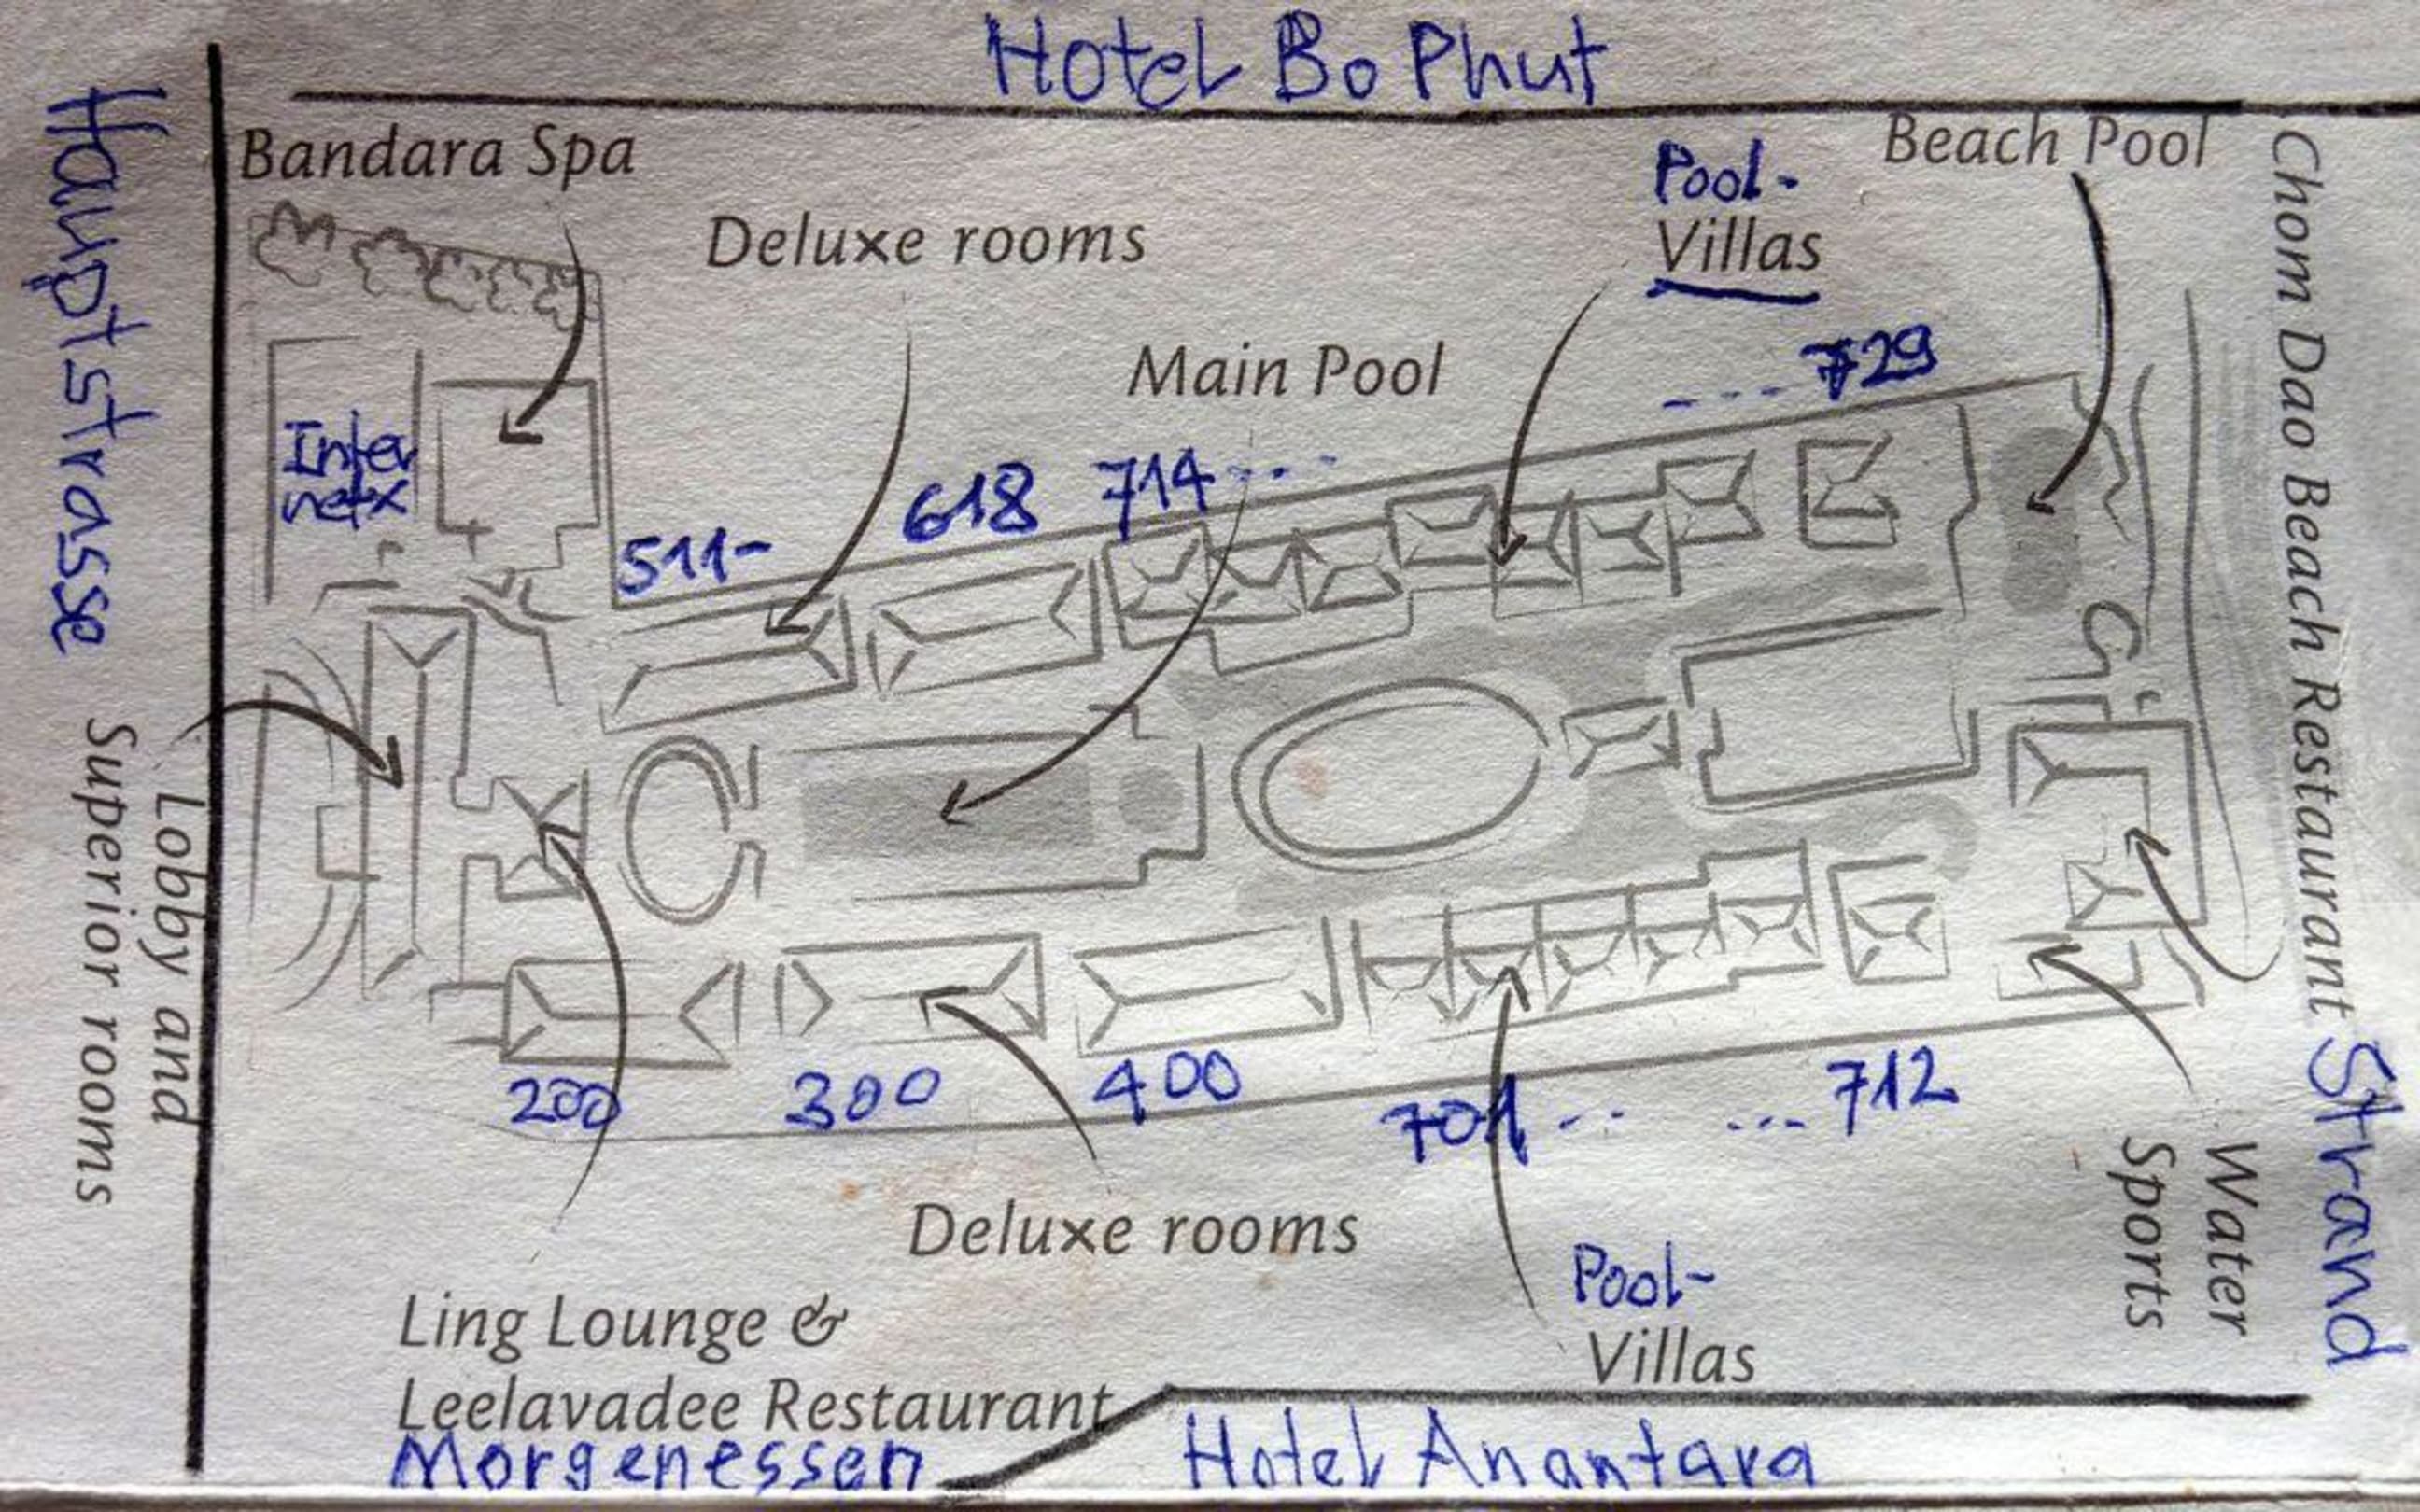 Hotel Bo Phut
Hauptstrasse
Bandara Spa
Deluxe rooms
Pool-
Villas
Beach Pool
Chom Dao Beach Restaurant
Main Pool
729
714
618
511-
Lobby and
Superior rooms
200
300
400
701
712
Strand
Water
Sports
Deluxe rooms
Pool-
Villas
Ling Lounge &
Leelavadee Restaurant
Morgenessen
Hotel Anantara